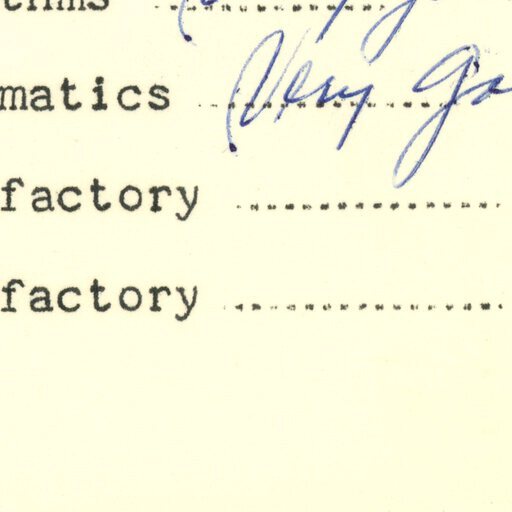 matics Very Go
factory
factory